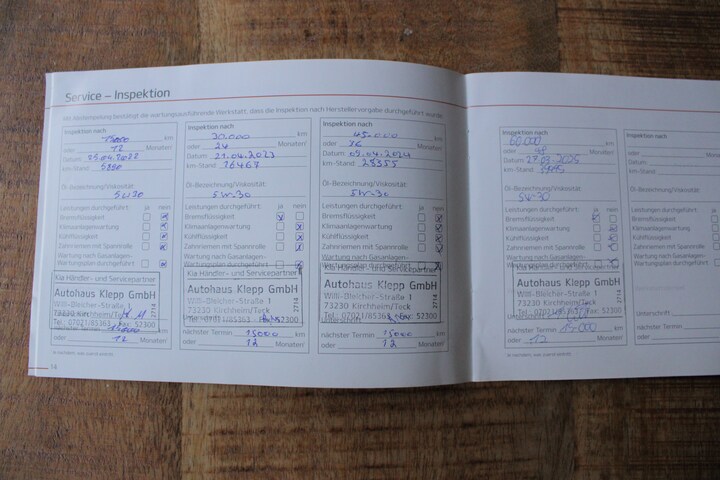 Service – Inspektion
Mit Abstempelung bestätigt die wartungsausführende Werkstatt, dass die Inspektion nach Herstellervorgabe durchgeführt wurde.
Inspektion nach
15000 km
oder 12 Monaten
Datum 25.04.2022
km-Stand
Öl-Bezeichnung/Viskosität:
5W30
Leistungen durchgeführt: ja nein
Bremsflüssigkeit
Klimaanlagenwartung
Kühlflüssigkeit
Zahnriemen mit Spannrolle
Wartung nach Gasanlagen-
Wartungsplan durchgeführt
Kia Händler- und Servicepartner
Autohaus Klepp GmbH
Willi-Bleicher-Straße 1
73230 Kirchheim/Teck
Tel.: 07021/85363 Fax: 52300
2714
oder 12 Monaten
Inspektion nach
30.000 km
oder 24 Monaten
Datum 21.04.2023
km-Stand 16467
Öl-Bezeichnung/Viskosität:
5W-30
Leistungen durchgeführt: ja nein
Bremsflüssigkeit
Klimaanlagenwartung
Kühlflüssigkeit
Zahnriemen mit Spannrolle
Wartung nach Gasanlagen-
Wartungsplan durchgeführt
Kia Händler- und Servicepartner
Autohaus Klepp GmbH
Willi-Bleicher-Straße 1
73230 Kirchheim/Teck
Tel.: 07021/85363 Fax: 52300
2714
nächster Termin 15000 km
oder 12 Monaten
Inspektion nach
45.000 km
oder 36 Monaten
Datum 05.04.2024
km-Stand 25355
Öl-Bezeichnung/Viskosität:
5W-30
Leistungen durchgeführt: ja nein
Bremsflüssigkeit
Klimaanlagenwartung
Kühlflüssigkeit
Zahnriemen mit Spannrolle
Wartung nach Gasanlagen-
Wartungsplan durchgeführt
Kia Händler- und Servicepartner
Autohaus Klepp GmbH
Willi-Bleicher-Straße 1
73230 Kirchheim/Teck
Tel.: 07021/85363 Fax: 52300
2714
Unterschrift
nächster Termin 15000 km
oder 12 Monaten
14
Inspektion nach
60.000 km
oder 48 Monaten
Datum
km-Stand
Öl-Bezeichnung/Viskosität:
5W-30
Leistungen durchgeführt: ja nein
Bremsflüssigkeit
Klimaanlagenwartung
Kühlflüssigkeit
Zahnriemen mit Spannrolle
Wartung nach Gasanlagen-
Wartungsplan durchgeführt
Kia Händler- und Servicepartner
Autohaus Klepp GmbH
Willi-Bleicher-Straße 1
73230 Kirchheim/Teck
Tel.: 07021/85363 Fax: 52300
2714
Unterschrift
nächster Termin 15000 km
oder 12 Monaten
Inspektion nach
oder
Datum
km-Stand
Öl-Bezeichnung/Viskosität:
Leistungen durchgeführt:
Bremsflüssigkeit
Klimaanlagenwartung
Kühlflüssigkeit
Zahnriemen mit Spannrolle
Wartung nach Gasanlagen-
Wartungsplan durchgeführt
Unterschrift
nächster Termin
oder